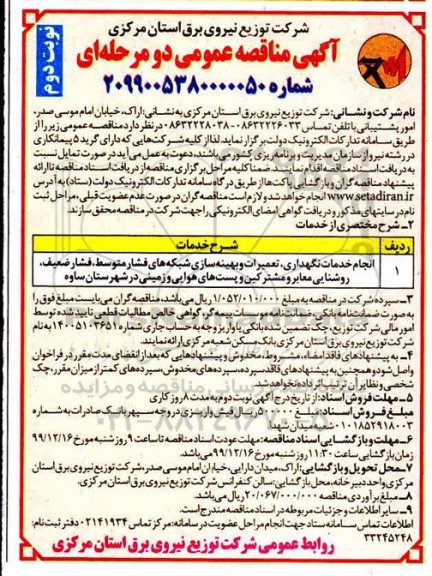 شرکت توزیع نیروی برق استان مرکزی
نوبت دوم
آگهی مناقصه عمومی دو مرحله‌ای
شماره ۲۰۹۹۰۰۵۳۸۰۰۰۰۰۵۰
نام شرکت و نشانی: شرکت توزیع نیروی برق استان مرکزی به نشانی: اراک، خیابان امام موسی صدر،
امور پشتیبانی با تلفن تماس ۰۸۶۳۲۲۲۶۰۳۳-۰۸۶۳۲۲۲۸۰۳۸ در نظر دارد مناقصه عمومی زیر را از
طریق سامانه تدارکات الکترونیک دولت برگزار نماید. لذا از کلیه شرکت‌هایی که دارای گرید ۵ پیمانکاری
در رشته نیرو از سازمان مدیریت و برنامه ریزی کشور می‌باشند، دعوت به عمل می‌آید در صورت تمایل نسبت
به دریافت اسناد مناقصه اقدام نمایند. ضمناً کلیه مراحل برگزاری مناقصه از دریافت اسناد مناقصه تا ارائه
پیشنهاد مناقصه گران و بازگشایی پاکت‌ها از طریق درگاه سامانه تدارکات الکترونیک دولت (ستاد) به آدرس
www.setadiran.ir انجام خواهد شد و لازم است مناقصه گران در صورت عدم عضویت قبلی، مراحل ثبت
نام در سایت‌های مذکور و دریافت گواهی امضای الکترونیکی را جهت شرکت در مناقصه محقق سازند.
۲- شرح مختصری از خدمات
ردیف شرح خدمات
۱ انجام خدمات نگهداری، تعمیرات و بهینه سازی شبکه‌های فشار متوسط، فشار ضعیف،
روشنایی معابر و مشترکین و پست‌های هوایی و زمینی در شهرستان ساوه
۳- سپرده شرکت در مناقصه به مبلغ ۱/۰۵۲/۰۱۰/۰۰۰ ریال می‌باشد، مناقصه گران می‌بایست مبلغ فوق را
به صورت ضمانتنامه بانکی، ضمانتنامه موسسات بیمه گر، گواهی خالص مطالبات قطعی تایید شده توسط
امور مالی شرکت توزیع، چک تضمین شده بانکی یا واریز وجه به حساب جاری شماره ۱۴۰۰۵۱۰۳۶۵۱ به نام
شرکت توزیع نیروی برق استان مرکزی بانک مسکن شعبه مرکزی ارائه نمایند.
۴- به پیشنهادهای فاقد امضاء، مشروط، مخدوش و پیشنهادهایی که بعد از انقضای مدت مقرر در فراخوان
واصل شود و همچنین به پیشنهادهای فاقد سپرده، سپرده‌های مخدوش، سپرده‌های کمتر از میزان مقرر، چک
شخصی و نظایر آن ترتیب اثر داده نخواهد شد.
۵- مهلت فروش اسناد: از تاریخ درج آگهی نوبت دوم به مدت ۸ روز کاری
مبلغ فروش اسناد: مبلغ ۵۰۰/۰۰۰ ریال فیش واریزی در وجه سپهر بانک صادرات به شماره
۰۱۰۱۸۵۲۹۱۸۰۰۳ شعبه میدان شهدا
۶- مهلت و بازگشایی اسناد مناقصه: مهلت عودت اسناد مناقصه تا ساعت ۹ روز شنبه مورخ ۹۹/۱۲/۱۶
زمان بازگشایی ساعت ۱۱:۳۰ روز شنبه مورخ ۹۹/۱۲/۱۶ می‌باشد.
۷- محل تحویل و بازگشایی: اراک، میدان دارایی، خیابان امام موسی صدر، شرکت توزیع نیروی برق استان
مرکزی واحد دبیرخانه، محل بازگشایی: سالن کنفرانس شرکت توزیع نیروی برق استان مرکزی.
۸- مبلغ برآوردی مناقصه ۲۰/۰۶۷/۰۰۰/۰۰۰ ریال می‌باشد.
۹- سایر اطلاعات و جزئیات مربوطه در اسناد مناقصه مندرج است.
اطلاعات تماس سامانه ستاد جهت انجام مراحل عضویت در سامانه: مرکز تماس ۰۲۱۴۱۹۳۴ دفتر ثبت نام:
۳۳۲۴۵۲۴۸
روابط عمومی شرکت توزیع نیروی برق استان مرکزی